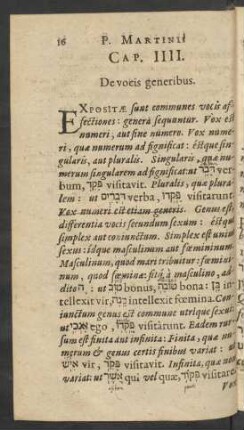 16 P. MARTINII
CAP. IIII.
De vocis generibus.
EXPOSITÆ sunt communes vocis af-
fectiones: genera sequuntur. Vox est
numeri, aut sine numero. Vox nume-
ri, quæ numerum adsignificat: éstque sin-
gularis, aut pluralis. Singularis, quæ nu-
merum singularem adsignificat: ut דבר ver-
bum, פקד visitavit. Pluralis, quæ plura-
lem: ut דברים verba, פקדו visitarunt.
Vox numeri est etiam generis. Genus est
differentia vocis secundum sexum: éstque
simplex aut conjunctum. Simplex est unius
sexus: idque masculinum aut fœmininum.
Masculinum, quod mari tribuitur: fœmini-
num, quod fœminæ: à masculino, ad-
dito ה: ut טוב bonus, טובה bona: בן in-
tellexit vir, בנה intellexit fœmina. Con-
junctum genus est commune utrique sexui:
ut אנכי ego, פקדו visitârunt. Eadem rur-
sum est finita aut infinita: Finita, quæ nu-
merum & genus certis finibus variat: ut
איש vir, פקד visitavit. Infinita, quæ non
variat: ut אשר qui vel quæ, visitare